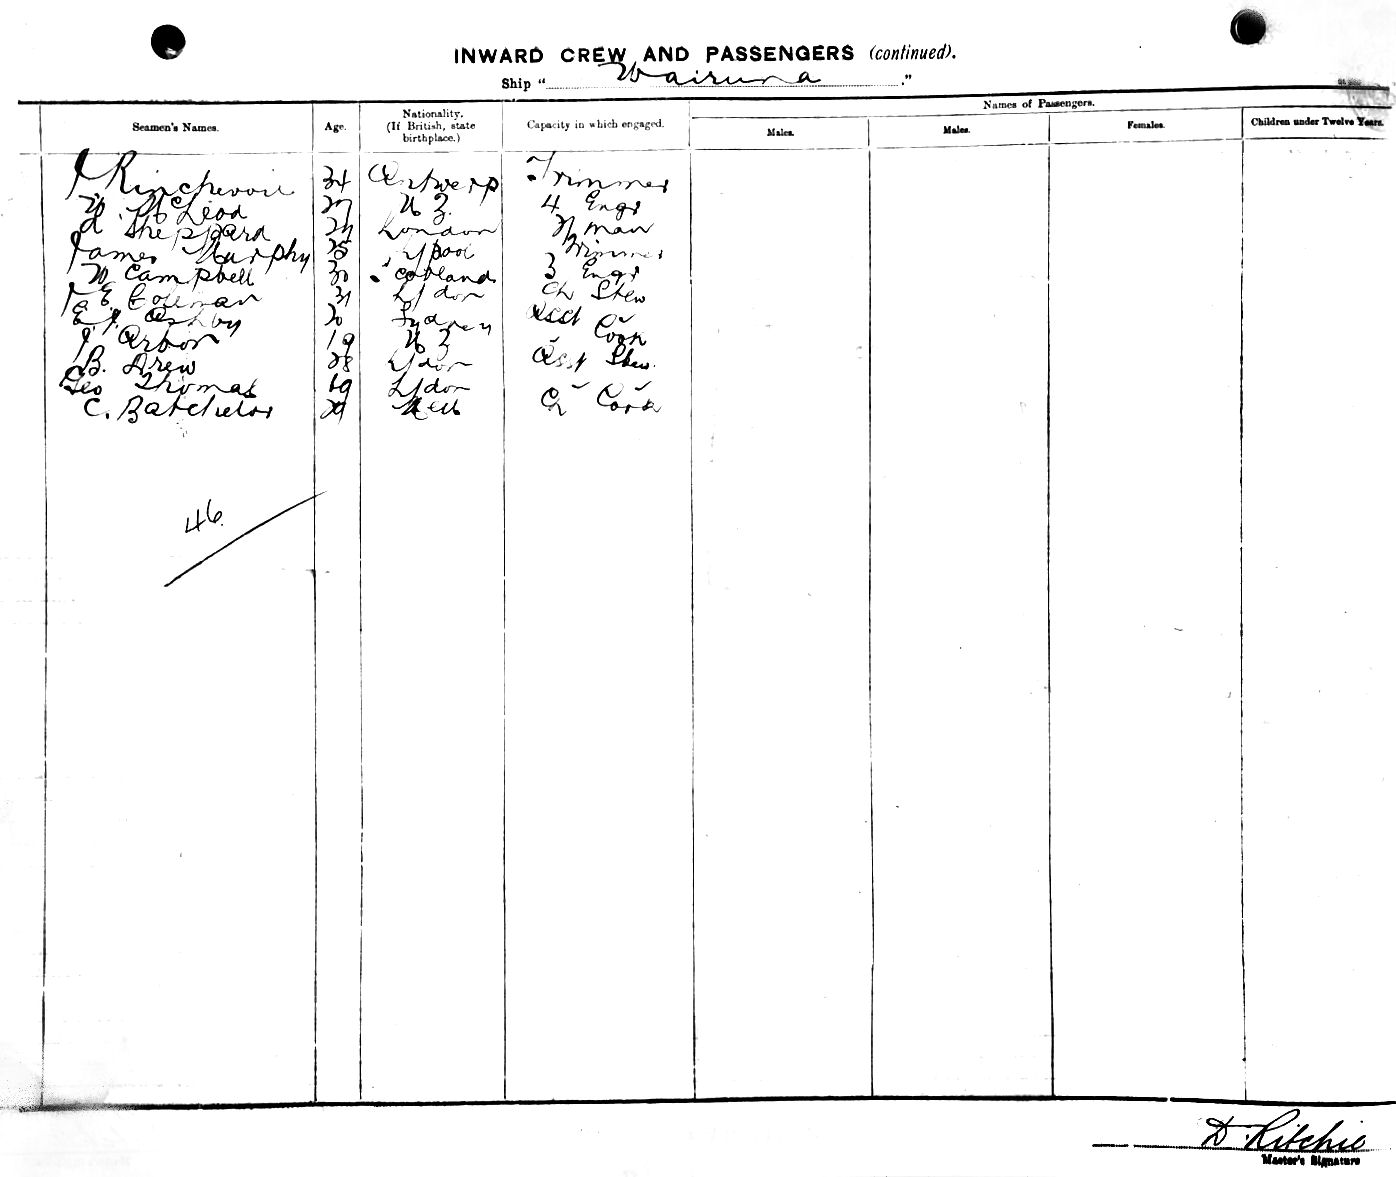 INWARD CREW AND PASSENGERS (continued).
Ship "Wairuna."
Names of Passengers.
Seamen's Names. Age. Nationality. (If British, state birthplace.) Capacity in which engaged. Males. Males. Females. Children under Twelve Years.
J 34 Antwerp Trimmer
W. McLeod 27 N Z. 4 Engr
Sheppard London Fman
James Murphy 25 L/pool Trimmer
W Campbell 30 Scotland 3 Engr
E. Coleman 31 L/don Ch Stew
E. J. Ashby Sydney Asst Cook
J. Arbon 19 N Z
B. Drew 28 L/don Asst Stew.
Geo Thomas 19 L/don
C. Batchelor Ch Cook
46.
D. Ritchie
Master's Signature